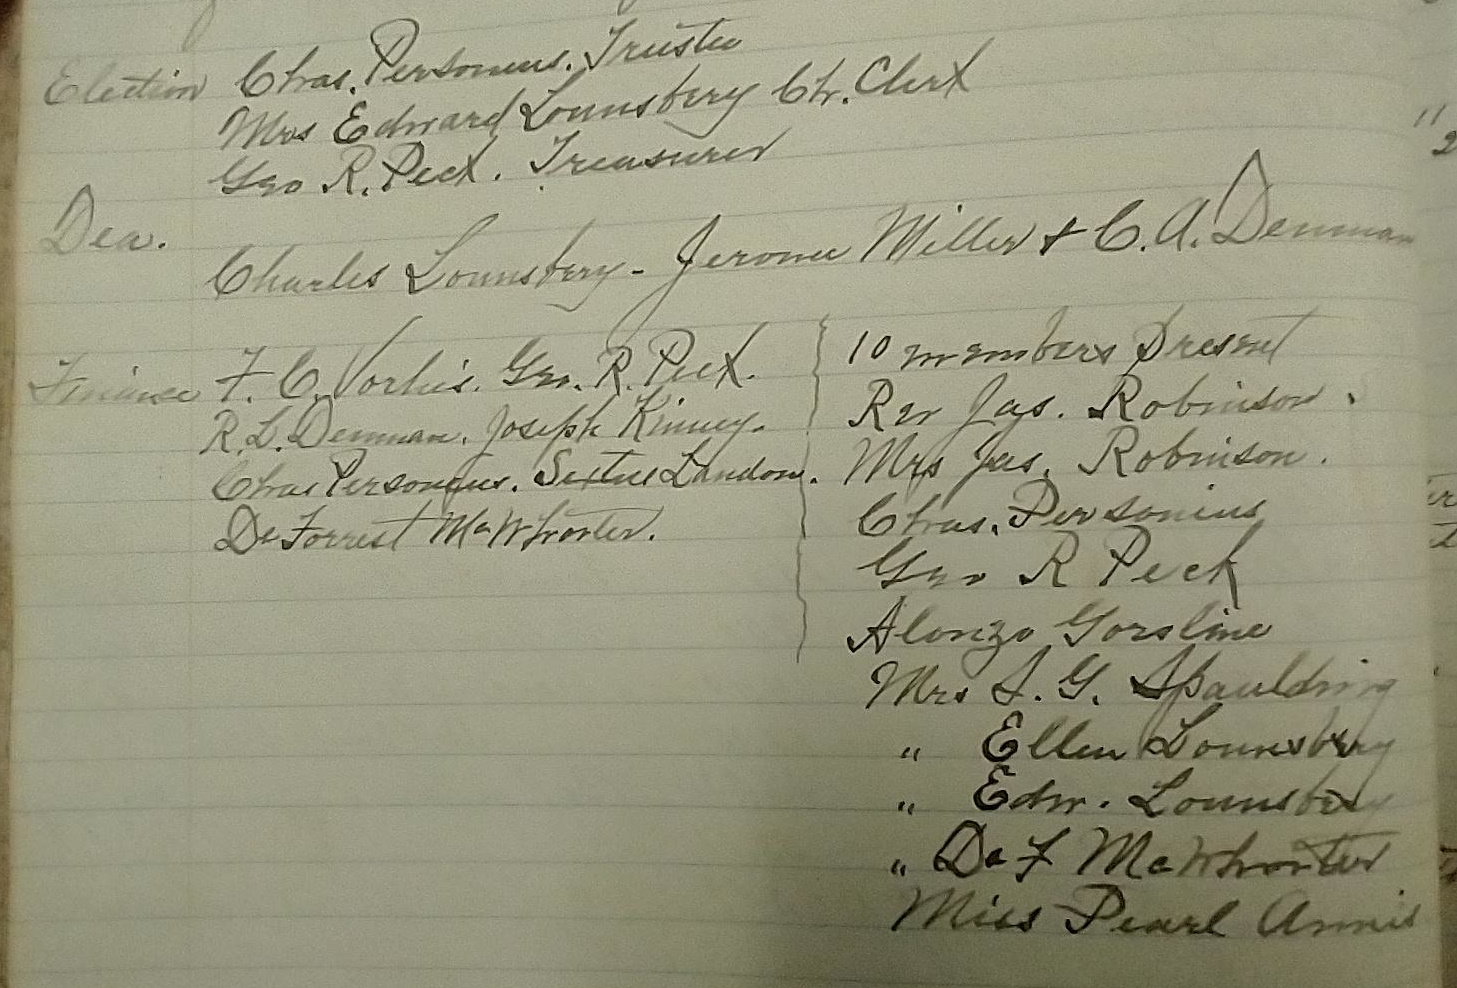 Election Chas. Personius. Trustee
Mrs Edward Lounsbery Ch. Clerk
Geo R. Peck. Treasurer
Dea.
Charles Lounsbery - Jerome Miller & C. A. Denman
Finance F. C. Vorhis. Geo. R. Peck.
R. L. Denman. Joseph Kinney.
Chas Personius. Landon.
DeForrest McWhorter.
10 members Present
Rev Jas. Robinson.
Mrs Jas. Robinson.
Chas. Personius
Geo R Peck
Alonzo Gorsline
Mrs S. G. Spaulding
" Ellen Lounsbery
" Edw. Lounsbery
" De F McWhorter
Miss Pearl Annis